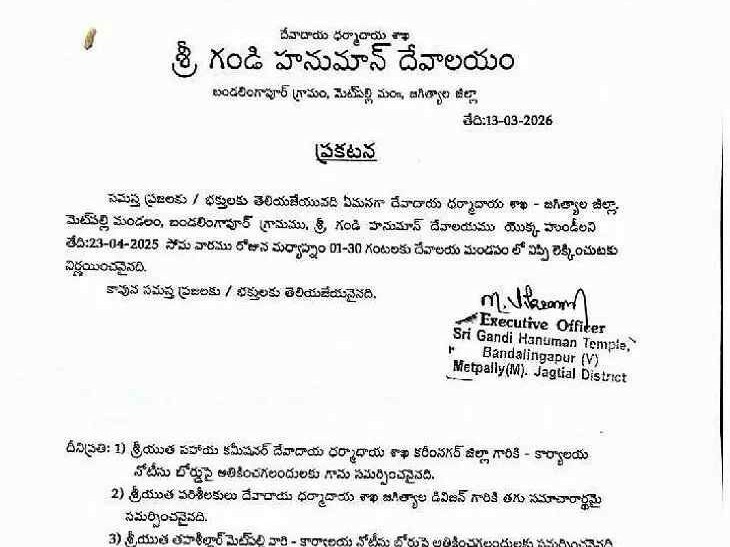 దేవాదాయ ధర్మాదాయ శాఖ
శ్రీ గండి హనుమాన్ దేవాలయం
బండలింగాపూర్ గ్రామం, మెట్‌పల్లి మం॥, జగిత్యాల జిల్లా
తేది:13-03-2026
ప్రకటన
సమస్త ప్రజలకు / భక్తులకు తెలియజేయునది ఏమనగా దేవాదాయ ధర్మాదాయ శాఖ - జగిత్యాల జిల్లా.
మెట్‌పల్లి మండలం, బండలింగాపూర్ గ్రామము, శ్రీ గండి హనుమాన్ దేవాలయము యొక్క హుండీలని
తేది:23-04-2025 సోమ వారము రోజున మధ్యాహ్నం 01-30 గంటలకు దేవాలయ మండపం లో విప్పి లెక్కించుటకు
నిర్ణయించవైనది.
కావున సమస్త ప్రజలకు / భక్తులకు తెలియజేయనైనది.
Executive Officer
Sri Gandi Hanuman Temple,
Bandalingapur (V)
Metpally(M). Jagtial District
దీనిప్రతి: 1) శ్రీయుత సహాయ కమీషనర్ దేవాదాయ ధర్మాదాయ శాఖ కరీంనగర్ జిల్లా గారికి - కార్యాలయ
నోటీసు బోర్డుపై అతికించగలందులకు గాను సమర్పించనైనది.
2) శ్రీయుత పరిశీలకులు దేవాదాయ ధర్మాదాయ శాఖ జగిత్యాల డివిజన్ గారికి తగు సమాచారార్థమై
సమర్పించనైనది.
3) శ్రీయుత తహశీల్దార్ మెట్‌పల్లి వారి - కార్యాలయ నోటీసు బోర్డుపై అతికించగలందులకు సమర్పించనైనది